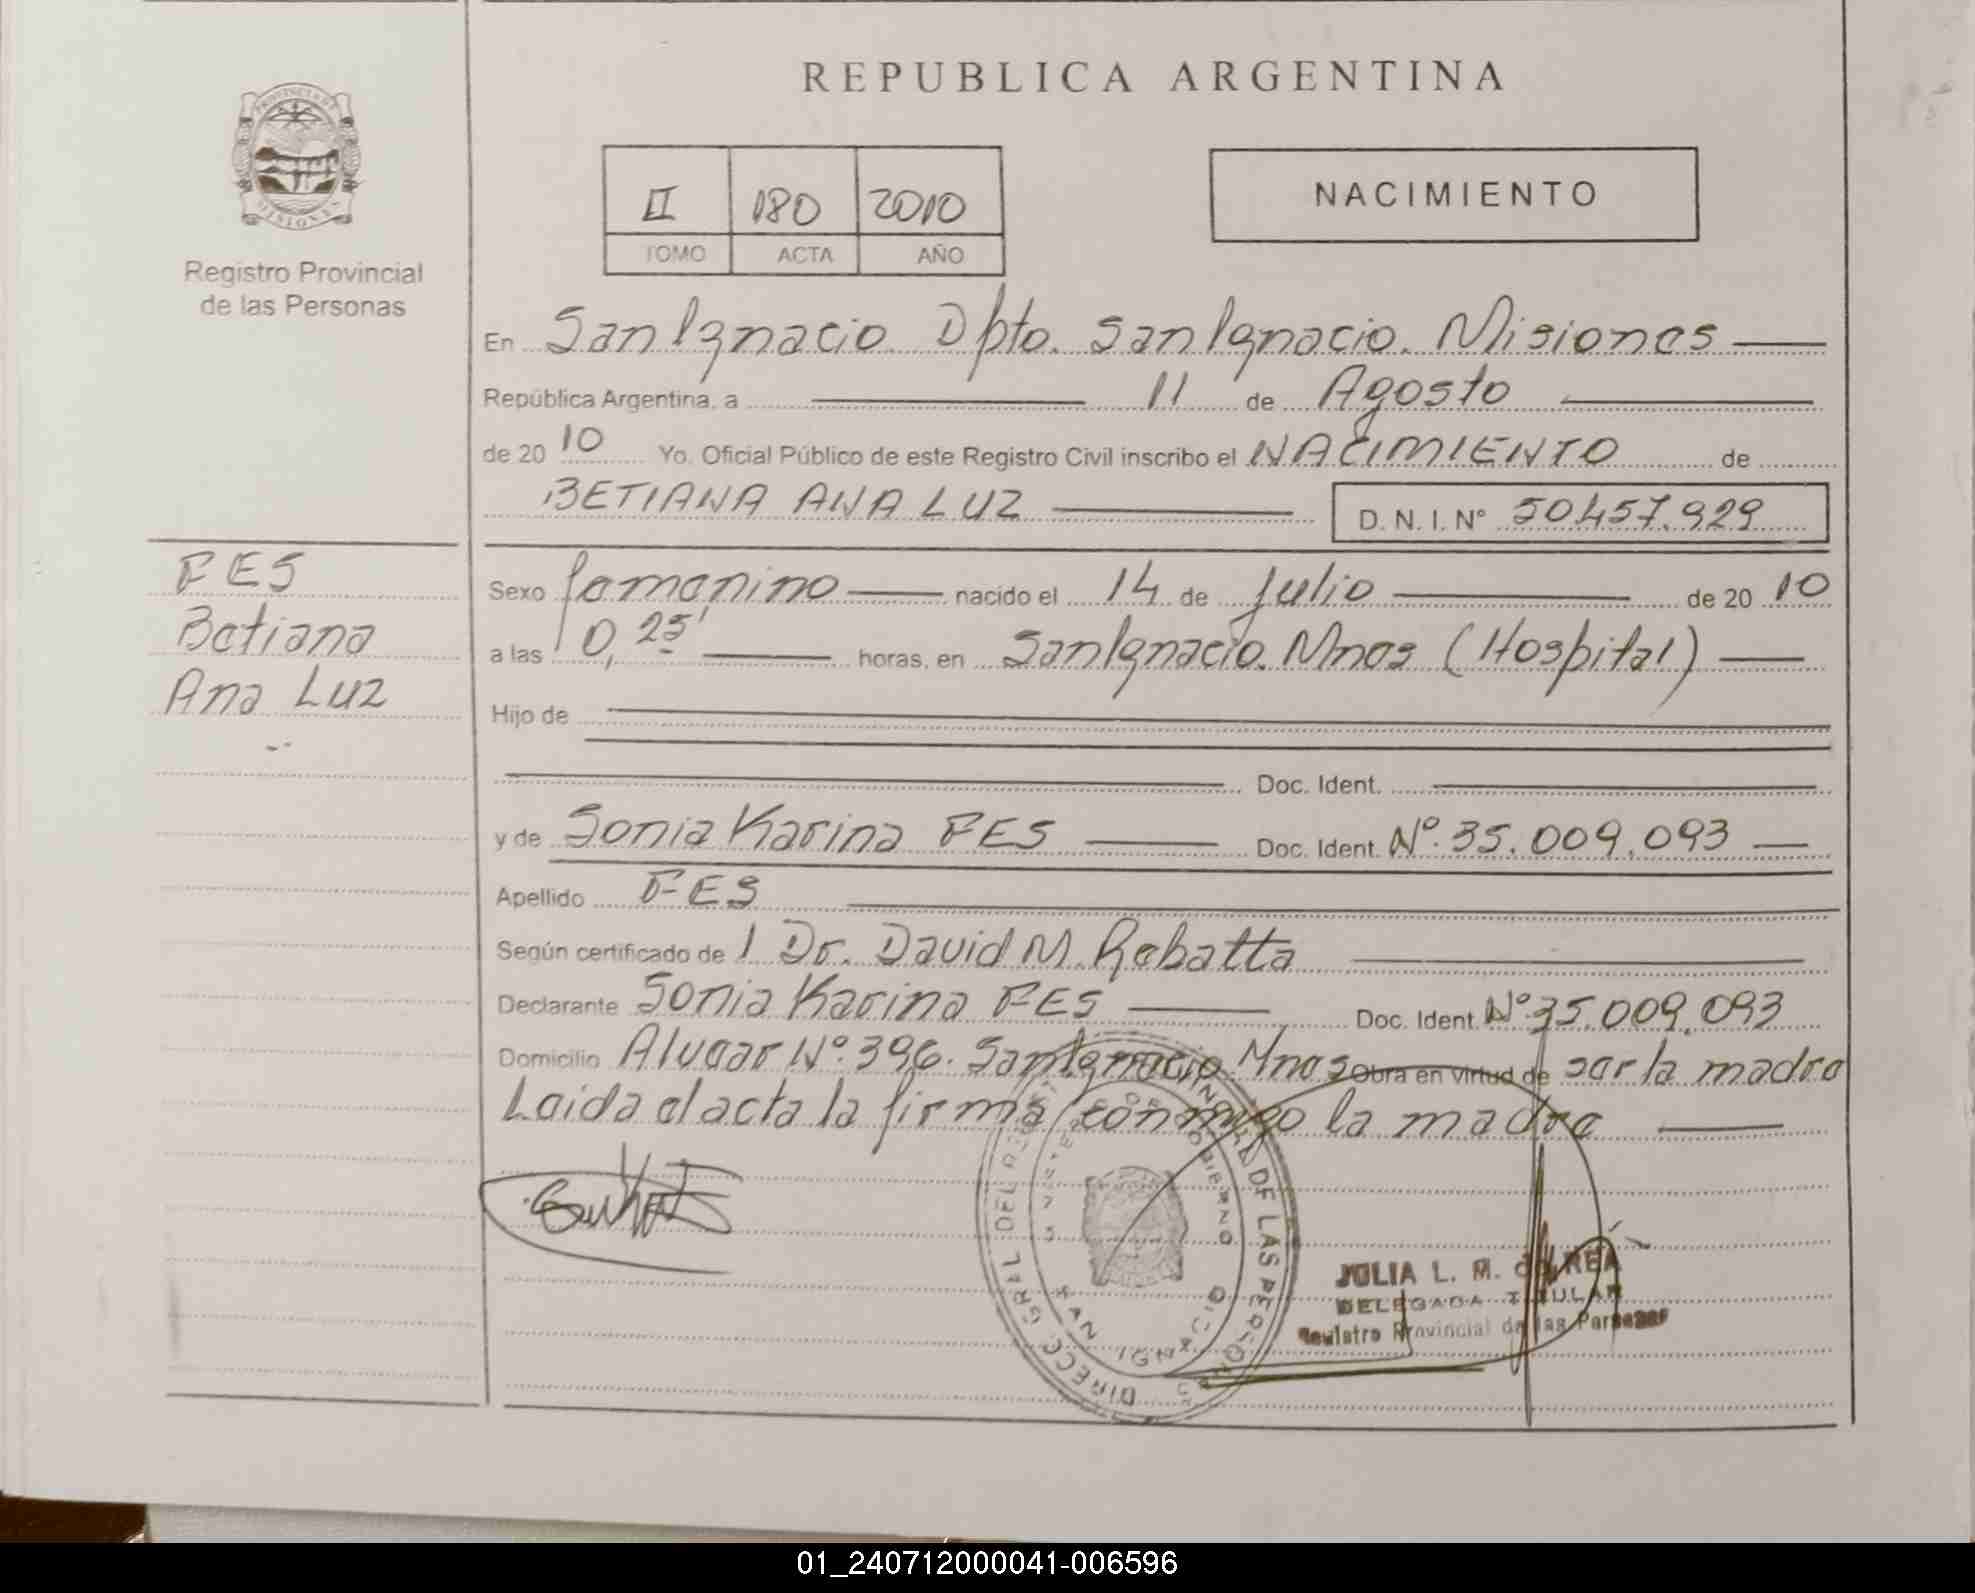 REPUBLICA ARGENTINA
PROVINCIA DE MISIONES
Registro Provincial
de las Personas
II 180 2010
TOMO ACTA AÑO
NACIMIENTO
En San Ignacio Dpto. San Ignacio. Misiones
República Argentina, a 11 de Agosto
de 2010 Yo, Oficial Público de este Registro Civil inscribo el NACIMIENTO de
BETIANA ANA LUZ D.N.I. Nº 50457.929
FES
Betiana
Ana Luz
Sexo femenino nacido el 14 de Julio de 2010
a las 0,25' horas, en San Ignacio. Mnes (Hospital)
Hijo de
Doc. Ident.
y de Sonia Karina FES Doc. Ident. Nº.35.009.093
Apellido FES
Según certificado de l Dr. David M. Rebatta
Declarante Sonia Karina FES Doc. Ident. Nº35.009.093
Domicilio Alvear Nº.396. San Ignacio Mnes Obra en virtud de ser la madre
Leida el acta la firma conmigo la madre
DIRECC. GRAL DEL DE LAS PERSONAS
SAN IGNACIO
JULIA L. M. CORREA
DELEGADA TITULAR
Registro Provincial de las Personas
01_240712000041-006596